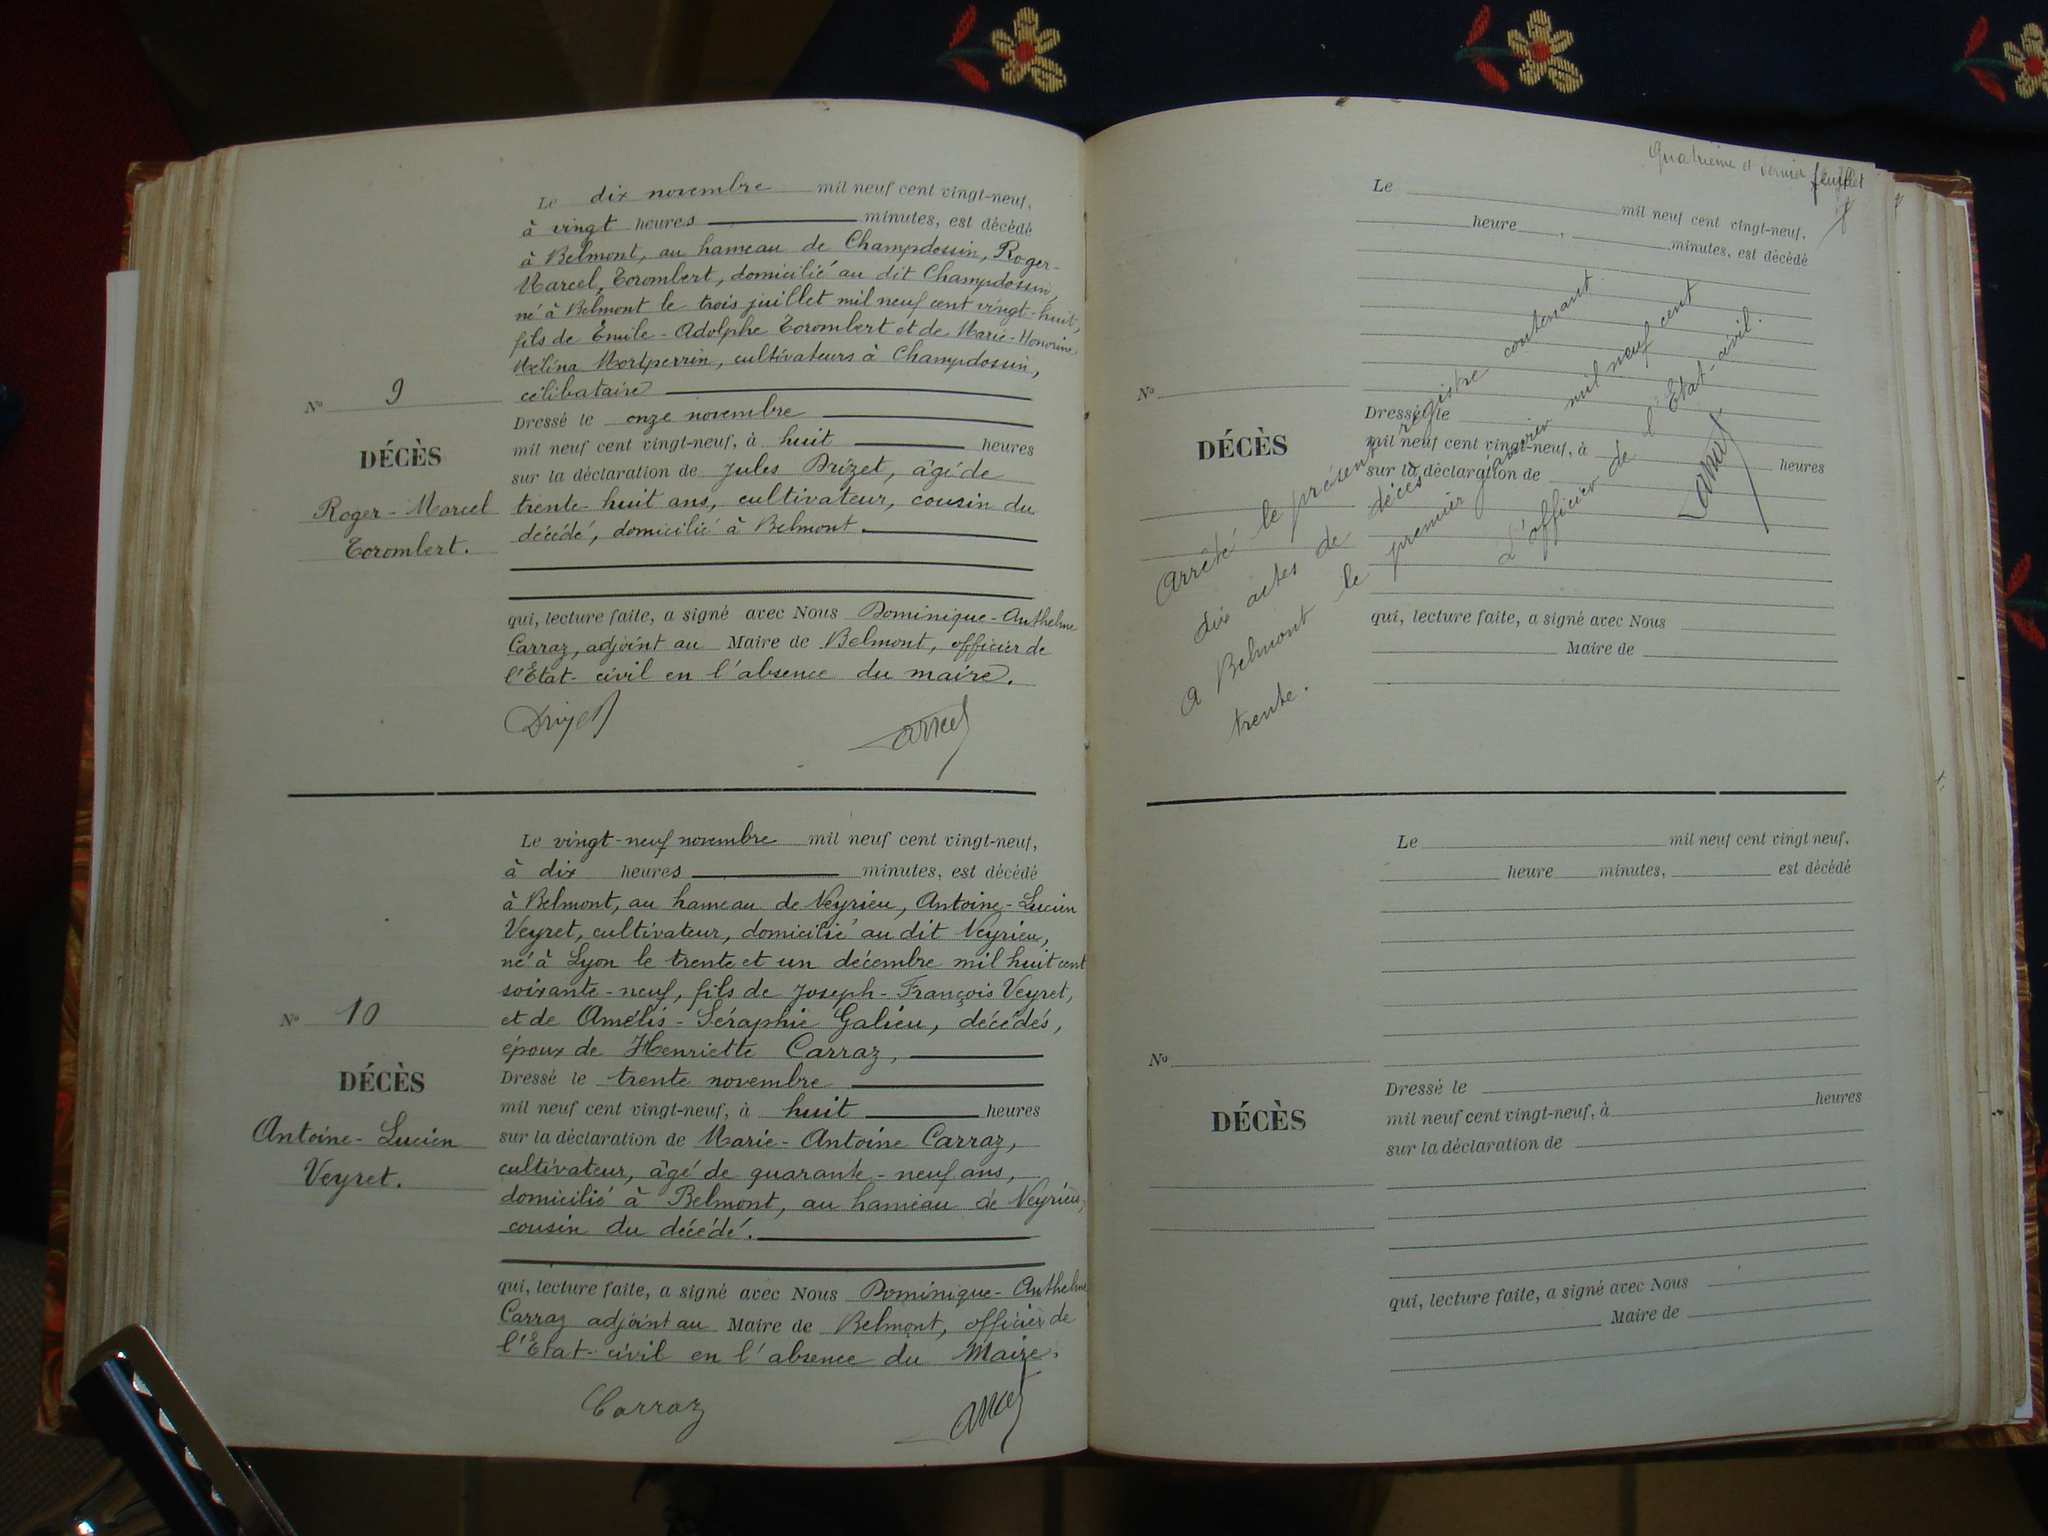 Le dix novembre mil neuf cent vingt-neuf,
à vingt heures minutes, est décédé
à Belmont, au hameau de Champdossin, Roger-
Marcel, Torombert, domicilié au dit Champdossin,
né à Belmont le trois juillet mil neuf cent vingt-huit,
fils de Émile-Adolphe Torombert et de Marie-Honorine
Mélina Montperrin, cultivateurs à Champdossin,
célibataire
Nº 9
DÉCÈS
Roger-Marcel
Torombert.
Dressé le onze novembre
mil neuf cent vingt-neuf, à huit heures
sur la déclaration de Jules Drizet, âgé de
trente-huit ans, cultivateur, cousin du
décédé, domicilié à Belmont.
qui, lecture faite, a signé avec Nous Dominique-Anthelme
Carraz, adjoint au Maire de Belmont, officier de
l'État-civil en l'absence du maire.
Drizet
Le vingt-neuf novembre mil neuf cent vingt-neuf,
à dix heures minutes, est décédé
à Belmont, au hameau de Veyrieu, Antoine-Lucien
Veyret, cultivateur, domicilié au dit Veyrieu,
né à Lyon le trente et un décembre mil huit cent
soixante-neuf, fils de Joseph-François Veyret,
et de Amélis-Séraphie Galieu, décédés,
époux de Henriette Carraz,
Nº 10
DÉCÈS
Antoine-Lucien
Veyret.
Dressé le trente novembre
mil neuf cent vingt-neuf, à huit heures
sur la déclaration de Marie-Antoine Carraz,
cultivateur, âgé de quarante-neuf ans,
domicilié à Belmont, au hameau de Veyrieu,
cousin du décédé.
qui, lecture faite, a signé avec Nous Dominique-Anthelme
Carraz adjoint au Maire de Belmont, officier de
l'État-civil en l'absence du Maire.
Carraz
Quatrième et dernier feuillet
Le mil neuf cent vingt-neuf,
heure, minutes, est décédé
Nº
DÉCÈS
Dressé le
mil neuf cent vingt-neuf, à heures
sur la déclaration de
qui, lecture faite, a signé avec Nous
Maire de
Arrêté le présent registre contenant
dix actes de décès
A Belmont le premier janvier mil neuf cent
trente.
L'officier de l'État-civil.
Le mil neuf cent vingt neuf,
heure minutes, est décédé
Nº
DÉCÈS
Dressé le
mil neuf cent vingt-neuf, à heures
sur la déclaration de
qui, lecture faite, a signé avec Nous
Maire de